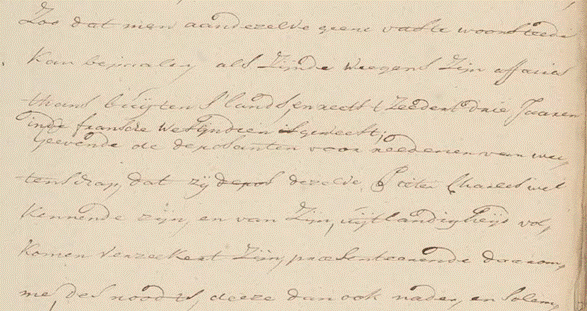 Zoo dat men aandezelve geene vaste woonsteede
kan bepaalen als Zijnde weegens Zijn affaires
thans buijten slands, en reets t Zeedert drie Jaaren
inde fransche Westindien is geweest;
Geevende de deposanten voor reedenen van wee„
tenschap, dat zij depos dezelve Pieter Charles wel
kennende zijn, en van Zijn, uijtlandigheijd vol„
komen verzeekert Zijn, presenteerende daarom„
me, des noodts, deeze dan ook nader, en solem„